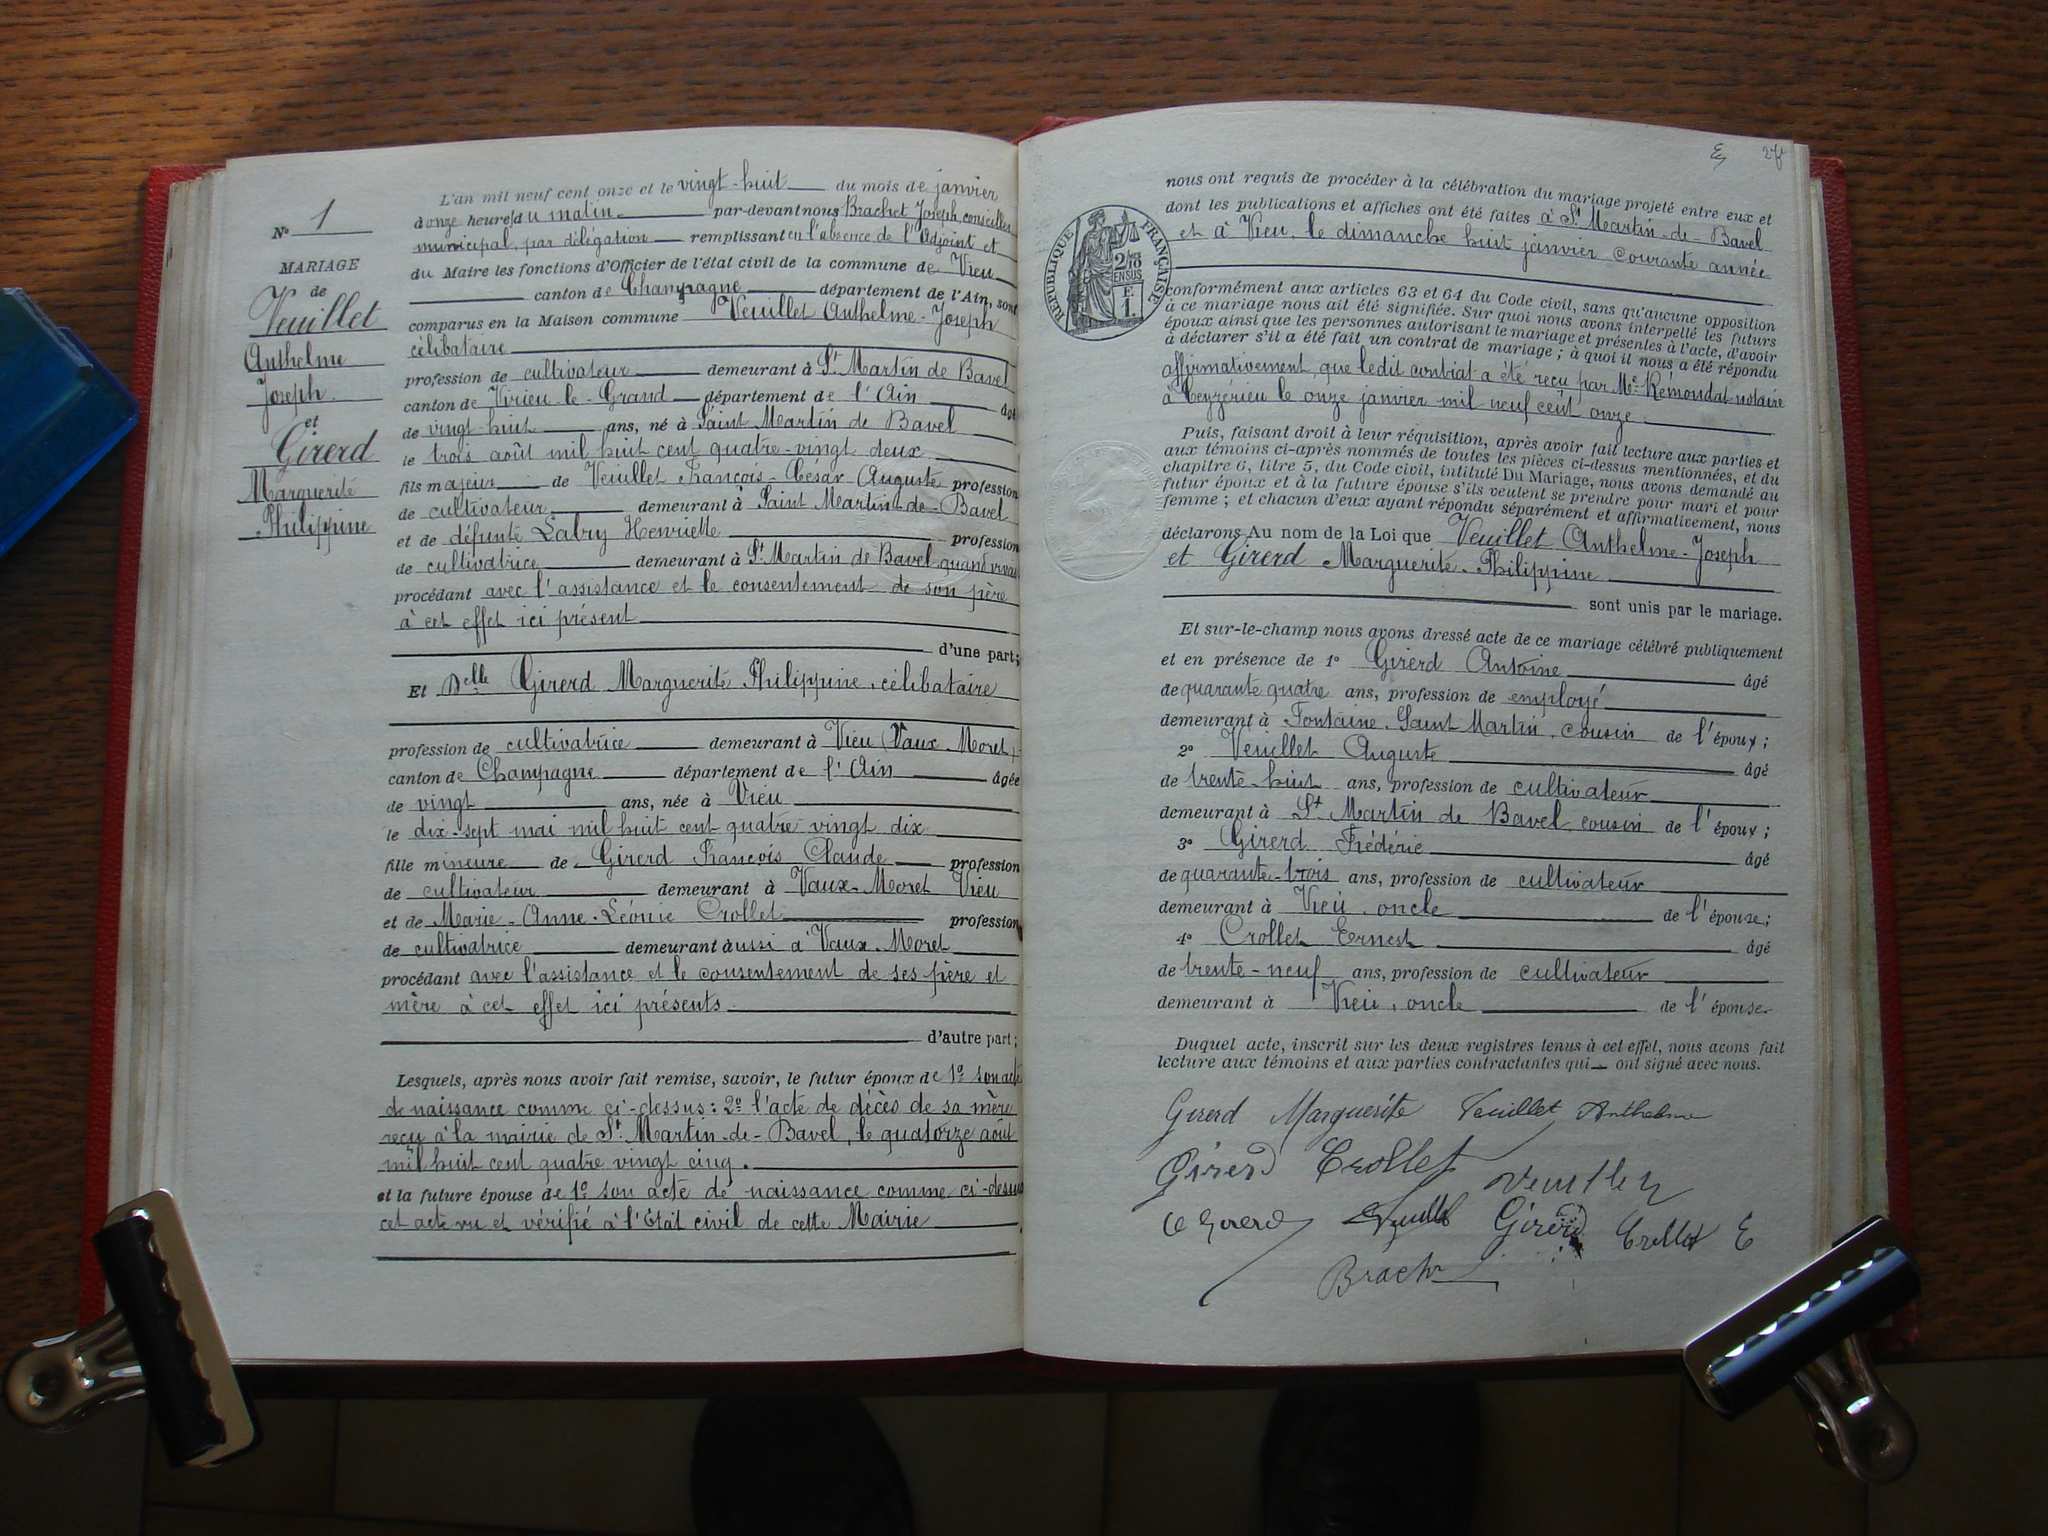 N° 1
MARIAGE
de
Veuillet
Anthelme
Joseph
et
Girerd
Marguerite
Philippine
L'an mil neuf cent onze et le vingt-huit du mois de janvier
à onze heures du matin par-devant nous Brachet Joseph, conseiller
municipal, par délégation remplissant en l'absence de l'Adjoint et
du Maire les fonctions d'Officier de l'état civil de la commune de Vieu
canton de Champagne département de l'Ain, sont
comparus en la Maison commune Veuillet Anthelme-Joseph
célibataire
profession de cultivateur demeurant à St Martin de Bavel
canton de Virieu-le-Grand département de l'Ain âgé
de vingt-huit ans, né à Saint Martin de Bavel
le trois août mil huit cent quatre-vingt deux
fils majeur de Veuillet François-César Auguste profession
de cultivateur demeurant à Saint Martin-de-Bavel
et de défunte Labry Henriette profession
de cultivatrice demeurant à St Martin de Bavel quand vivait
procédant avec l'assistance et le consentement de son père
à cet effet ici présent
d'une part;
Et Delle Girerd Marguerite Philippine, célibataire
profession de cultivatrice demeurant à Vieu (Vaux-Moret)
canton de Champagne département de l'Ain âgée
de vingt ans, née à Vieu
le dix-sept mai mil huit cent quatre vingt dix
fille mineure de Girerd François Claude profession
de cultivateur demeurant à Vaux-Moret Vieu
et de Marie-Anne-Léonie Crollet profession
de cultivatrice demeurant aussi à Vaux-Moret
procédant avec l'assistance et le consentement de ses père et
mère à cet effet ici présents
d'autre part;
Lesquels, après nous avoir fait remise, savoir, le futur époux de 1° son acte
de naissance comme ci-dessus: 2° l'acte de décès de sa mère
reçu à la mairie de St Martin-de-Bavel, le quatorze août
mil huit cent quatre vingt cinq.
et la future épouse de 1° son acte de naissance comme ci-dessus
cet acte vu et vérifié à l'État civil de cette Mairie
27
RÉPUBLIQUE FRANÇAISE
2/10 EN SUS
E.
1.
nous ont requis de procéder à la célébration du mariage projeté entre eux et
dont les publications et affiches ont été faites à St Martin-de-Bavel
et à Vieu, le dimanche huit janvier courante année
conformément aux articles 63 et 64 du Code civil, sans qu'aucune opposition
à ce mariage nous ait été signifiée. Sur quoi nous avons interpellé les futurs
époux ainsi que les personnes autorisant le mariage et présentes à l'acte, d'avoir
à déclarer s'il a été fait un contrat de mariage; à quoi il nous a été répondu
affirmativement, que ledit contrat a été reçu par Me Rémondat notaire
à Ceyzérieu le onze janvier mil neuf cent onze
Puis, faisant droit à leur réquisition, après avoir fait lecture aux parties et
aux témoins ci-après nommés de toutes les pièces ci-dessus mentionnées, et du
chapitre 6, titre 5, du Code civil, intitulé Du Mariage, nous avons demandé au
futur époux et à la future épouse s'ils veulent se prendre pour mari et pour
femme; et chacun d'eux ayant répondu séparément et affirmativement, nous
déclarons Au nom de la Loi que Veuillet Anthelme-Joseph
et Girerd Marguerite-Philippine
sont unis par le mariage.
Et sur-le-champ nous avons dressé acte de ce mariage célébré publiquement
et en présence de 1° Girerd Antoine âgé
de quarante quatre ans, profession de employé
demeurant à Fontaine-Saint Martin, cousin de l'époux;
2° Veuillet Auguste âgé
de trente-huit ans, profession de cultivateur
demeurant à St Martin de Bavel cousin de l'époux;
3° Girerd Frédéric âgé
de quarante-trois ans, profession de cultivateur
demeurant à Vieu, oncle de l'épouse;
4° Crollet Ernest âgé
de trente-neuf ans, profession de cultivateur
demeurant à Vieu, oncle de l'épouse
Duquel acte, inscrit sur les deux registres tenus à cet effet, nous avons fait
lecture aux témoins et aux parties contractantes qui ont signé avec nous.
Girerd Marguerite Veuillet Anthelme
Girerd Crollet Veuillet
Girerd Veuillet Girerd Crollet E
Brachet